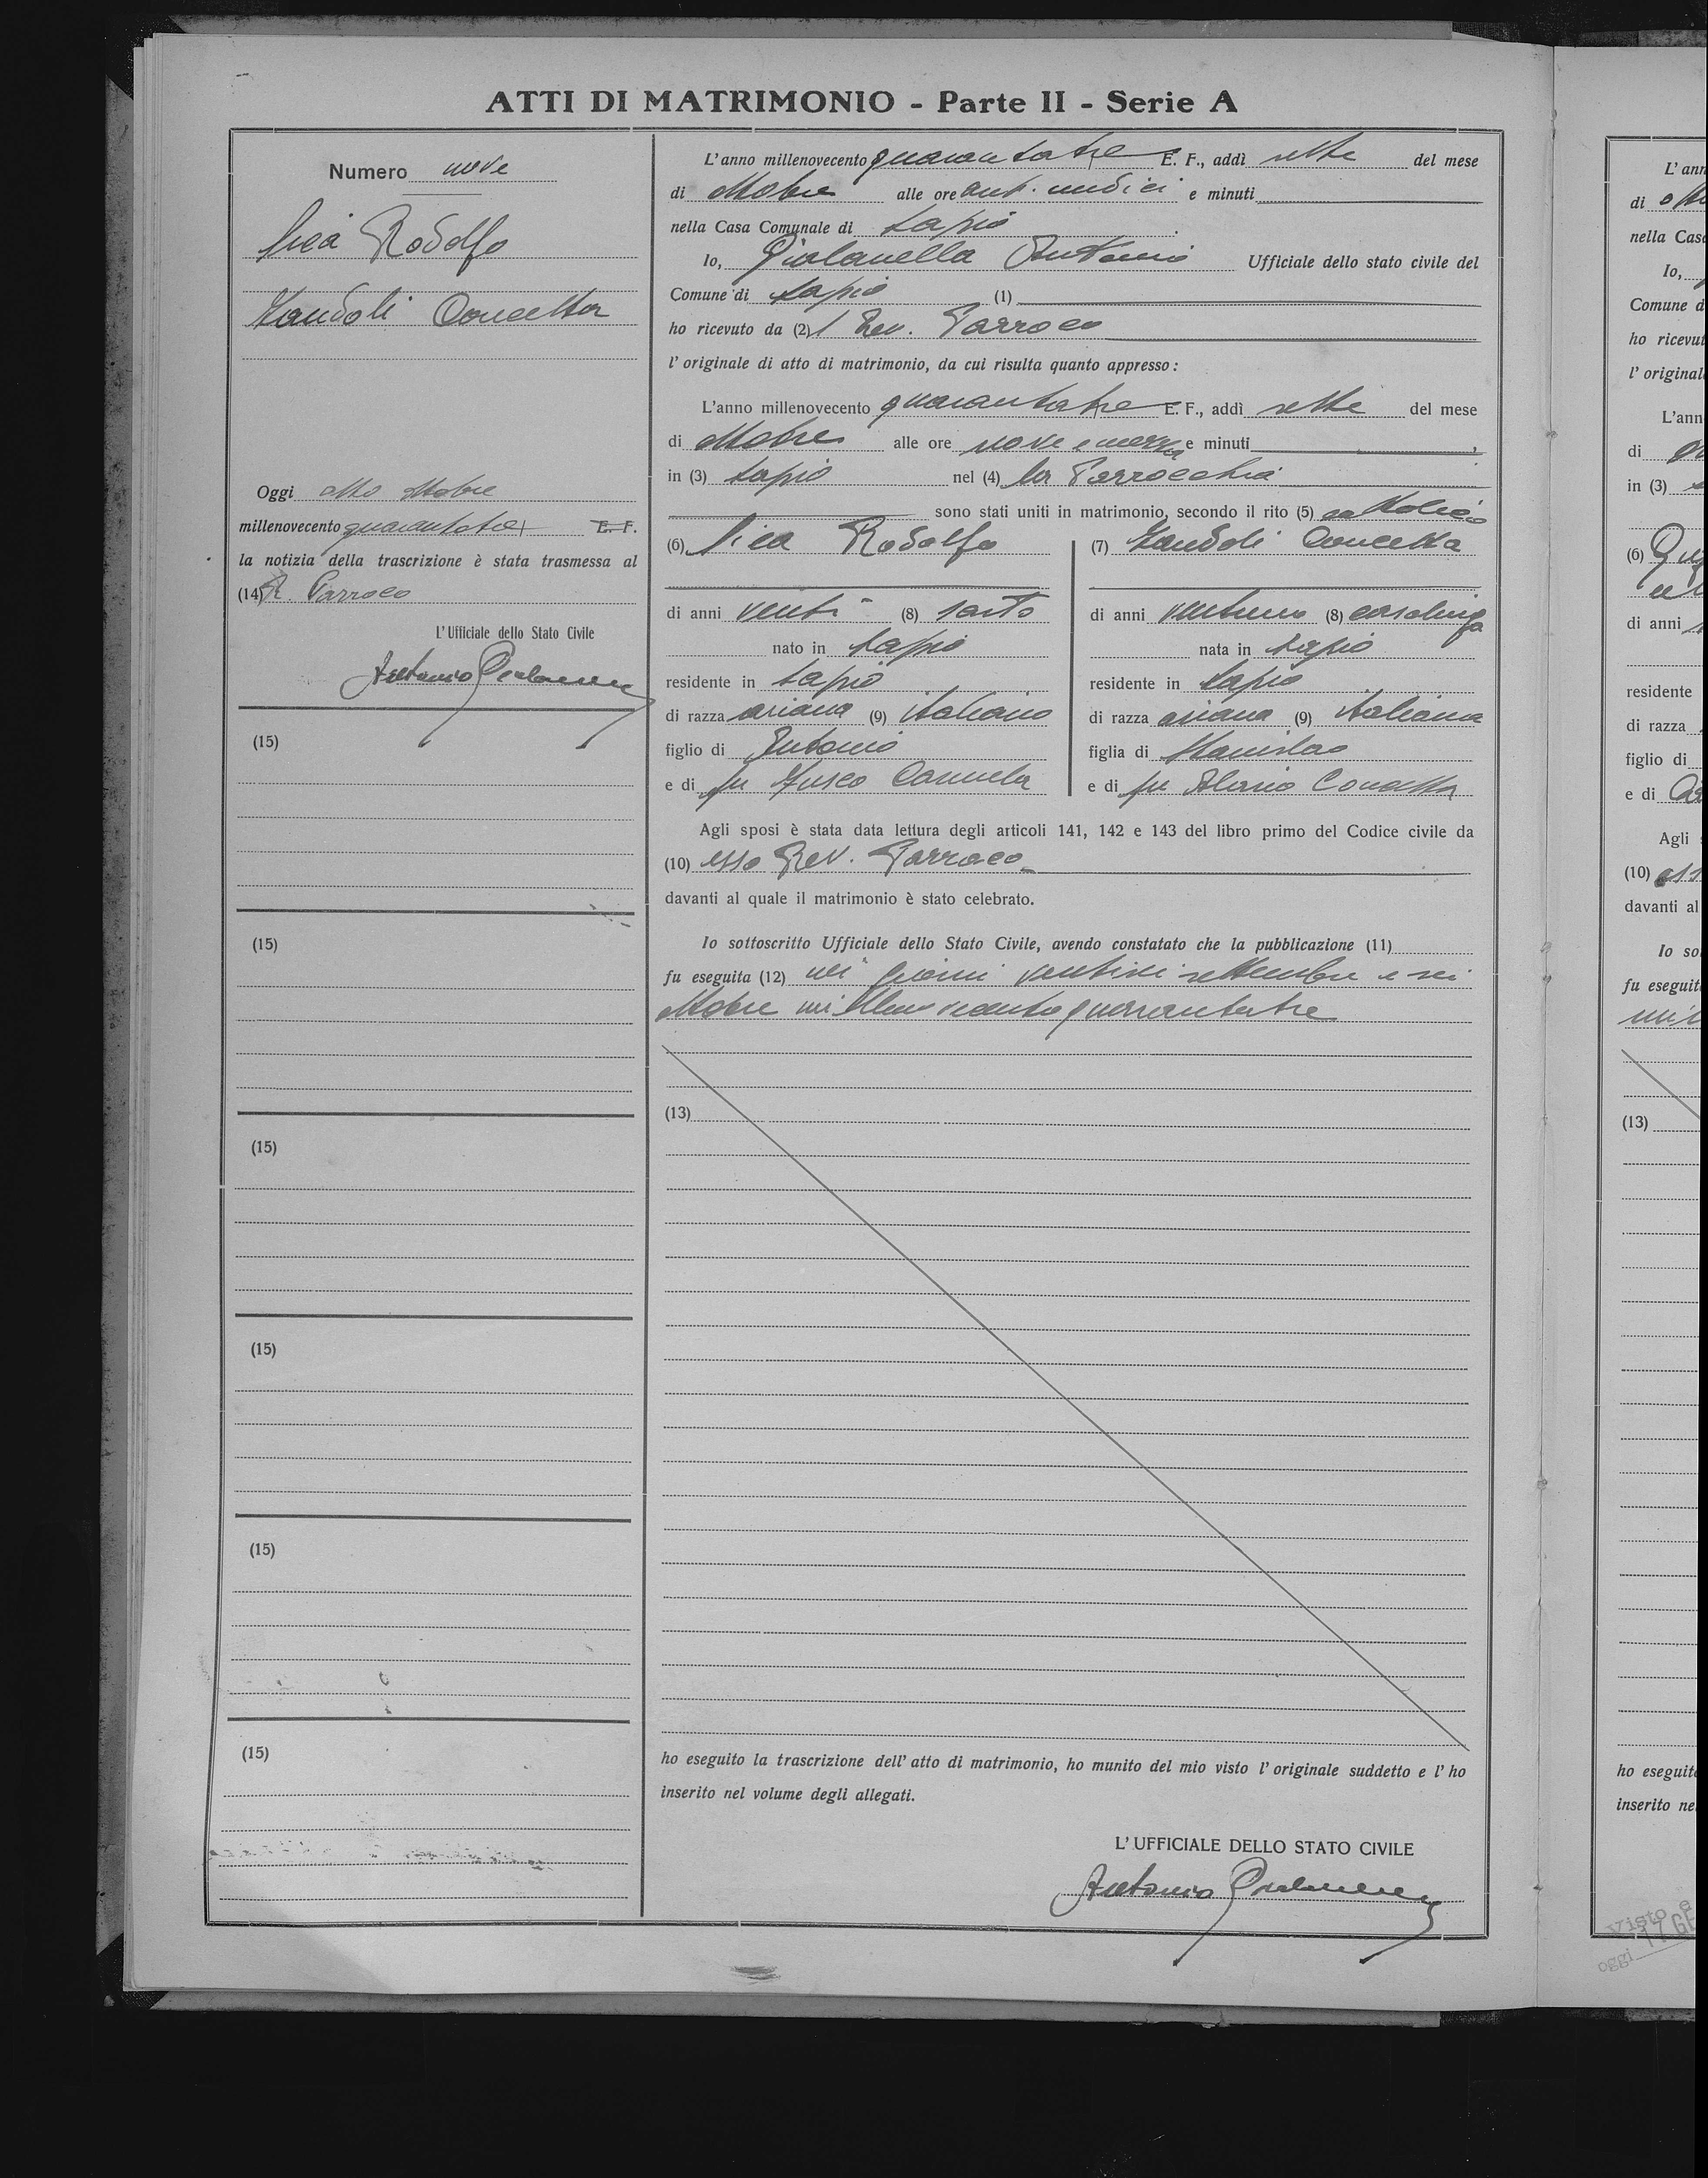 ATTI DI MATRIMONIO - Parte II - Serie A
Numero nove
Rodolfo
Zandoli Concetta
Oggi otto ottobre
millenovecento quarantatre E. F.
la notizia della trascrizione è stata trasmessa al
(14) R. Parroco
L'Ufficiale dello Stato Civile
Antonio
(15)
(15)
(15)
(15)
(15)
(15)
L'anno millenovecento quarantatre E. F., addì sette del mese
di ottobre alle ore ant. undici e minuti
nella Casa Comunale di Lapio
Io, Antonio Ufficiale dello stato civile del
Comune di Lapio (1)
ho ricevuto da (2) l Rev. Parroco
l'originale di atto di matrimonio, da cui risulta quanto appresso:
L'anno millenovecento quarantatre E. F., addì sette del mese
di ottobre alle ore nove e mezza e minuti
in (3) Lapio nel (4) la Parrocchia
sono stati uniti in matrimonio, secondo il rito (5) cattolico
(6) Rodolfo
(7) Zandoli Concetta
di anni venti (8) sarto
di anni ventuno (8) casalinga
nato in Lapio
nata in Lapio
residente in Lapio
residente in Lapio
di razza ariana (9) italiano
di razza ariana (9) italiana
figlio di Antonio
figlia di Stanislao
e di fu Carmela
e di fu Concetta
Agli sposi è stata data lettura degli articoli 141, 142 e 143 del libro primo del Codice civile da
(10) esso Rev. Parroco
davanti al quale il matrimonio è stato celebrato.
Io sottoscritto Ufficiale dello Stato Civile, avendo constatato che la pubblicazione (11)
fu eseguita (12) nei giorni ventisei settembre e sei
ottobre millenovecentoquarantatre
(13)
ho eseguito la trascrizione dell'atto di matrimonio, ho munito del mio visto l'originale suddetto e l'ho
inserito nel volume degli allegati.
L'UFFICIALE DELLO STATO CIVILE
Antonio
L'ann
di
nella Cas
Io,
Comune d
ho ricevut
l'original
L'ann
di
in (3)
(6)
di anni
residente
di razza
figlio di
e di
Agli
(10)
davanti al
Io so
fu eseguit
(13)
ho eseguit
inserito ne
Visto e
oggi 17 GE